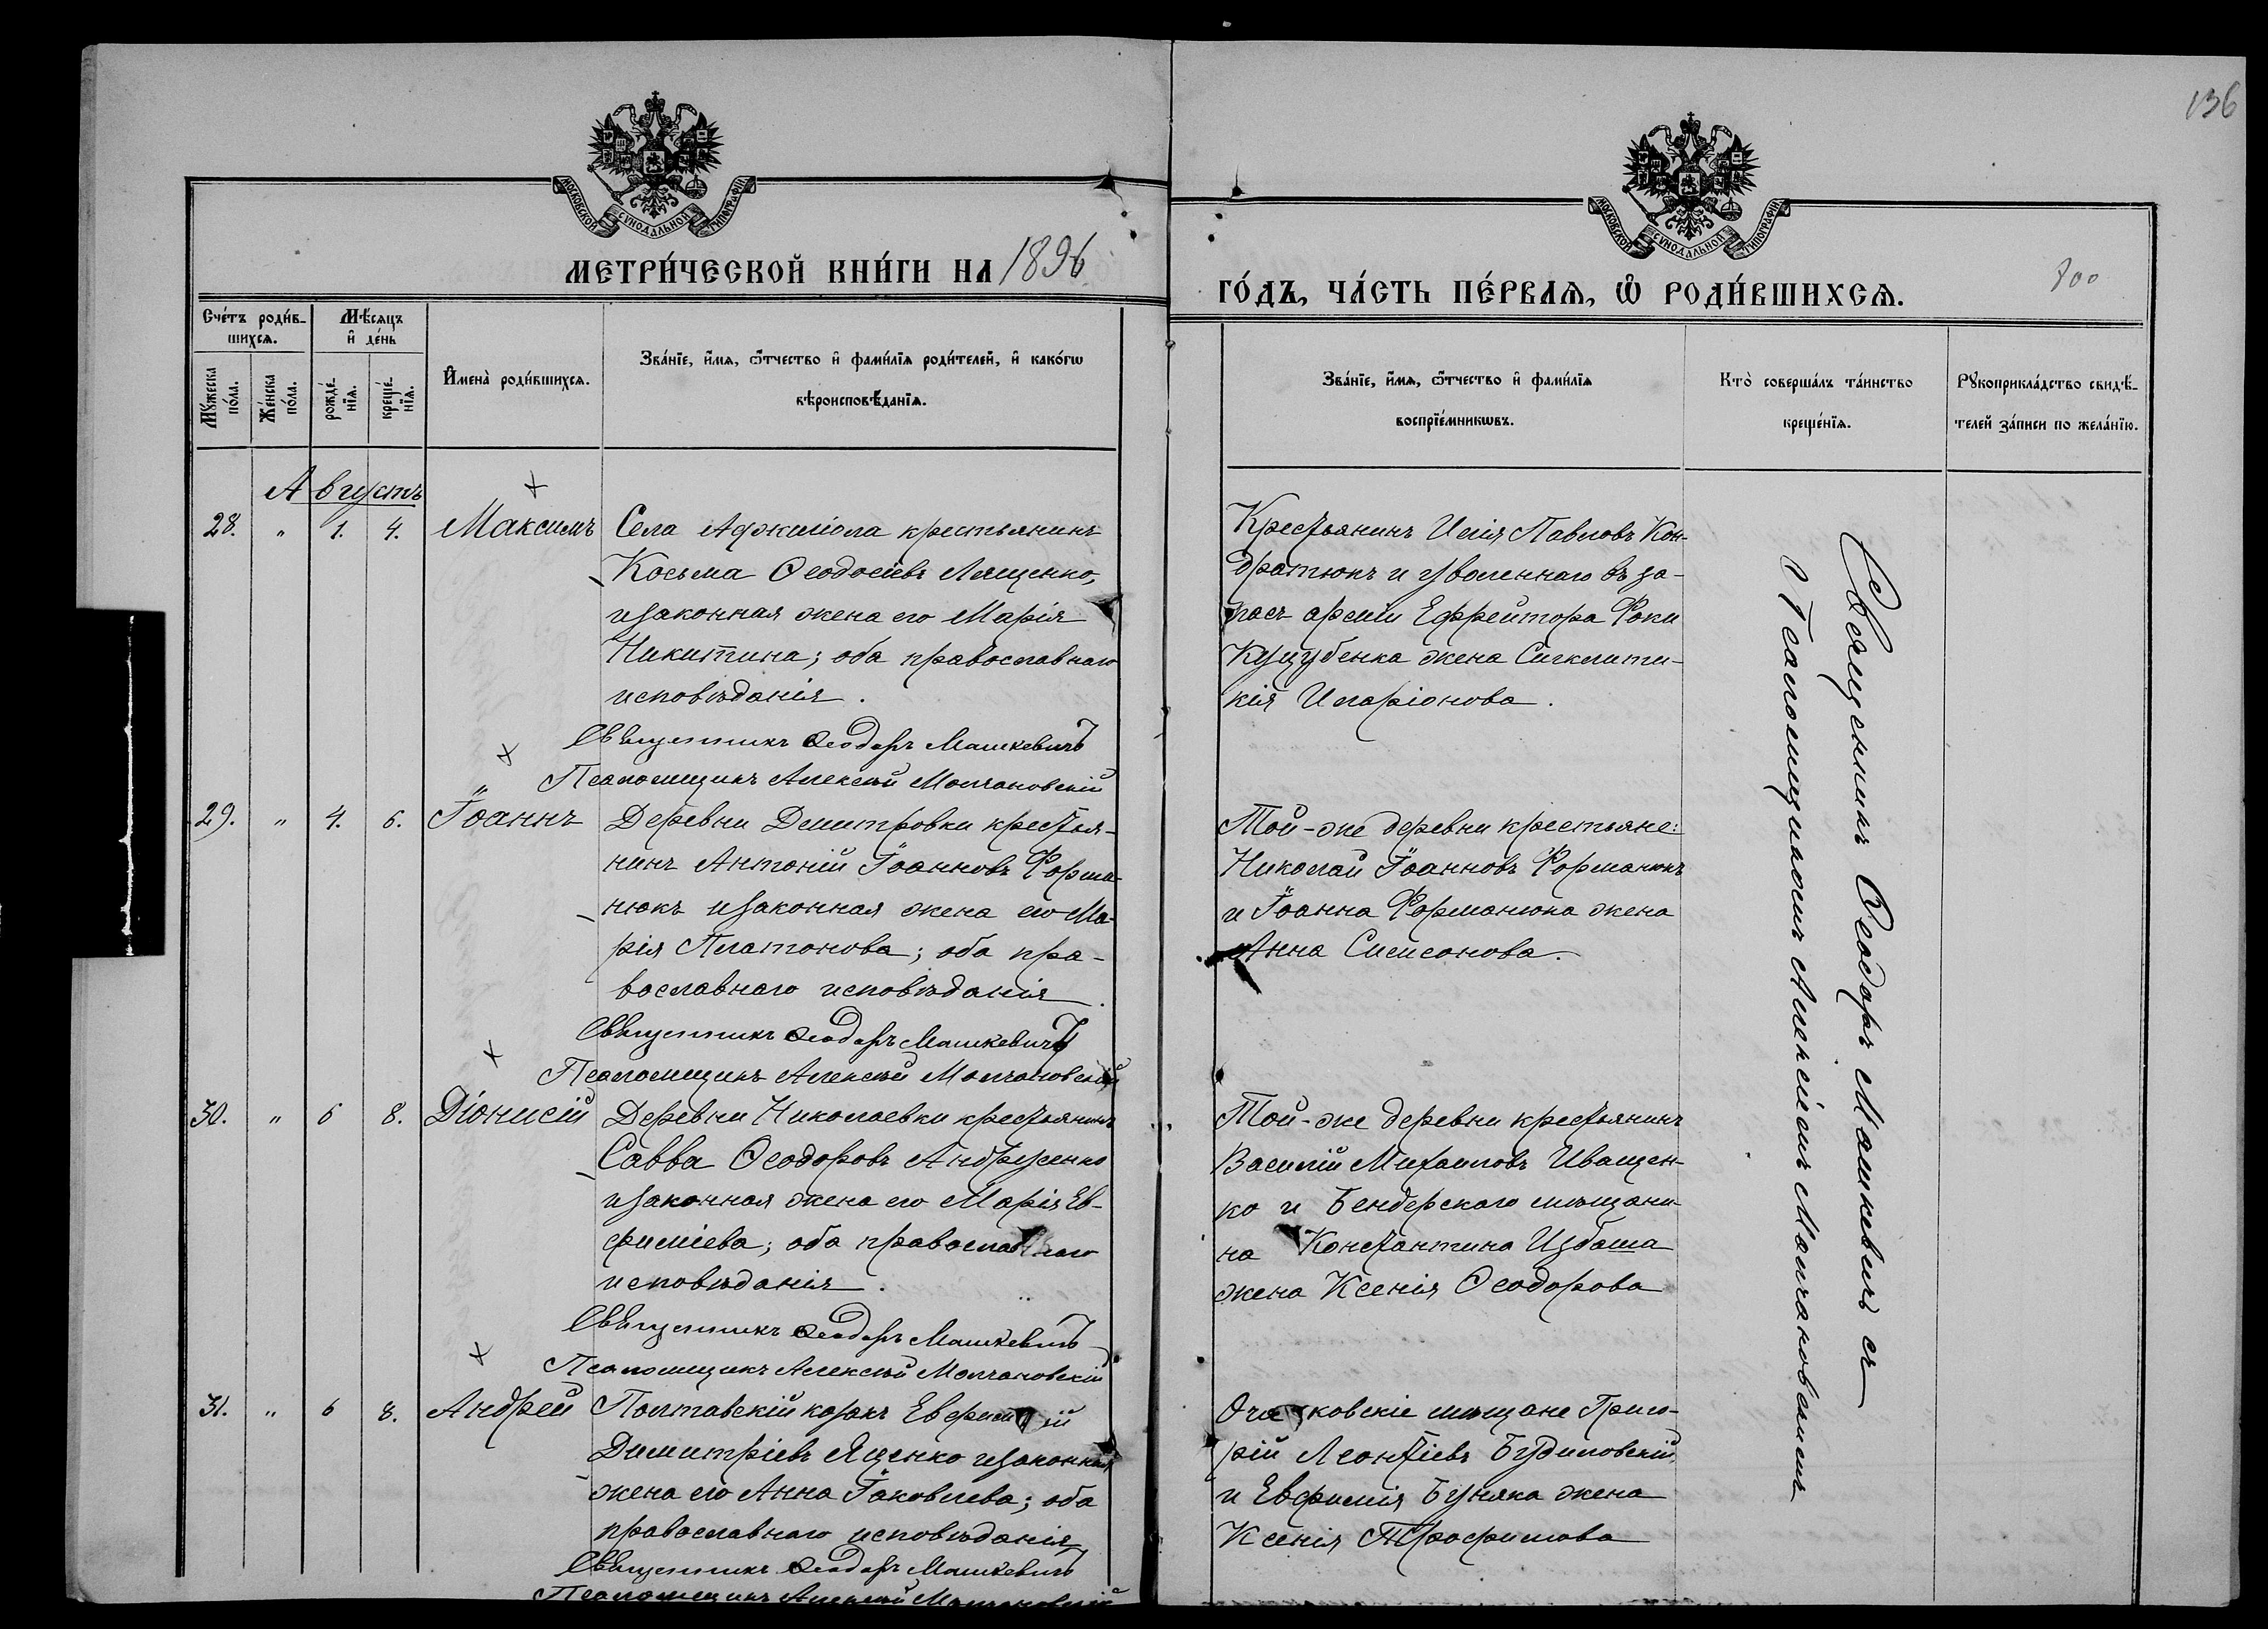 136
МОСКОВСКОЙ СѴНОДАЛЬНОЙ ТИПОГРАФІИ
МОСКОВСКОЙ СѴНОДАЛЬНОЙ ТИПОГРАФІИ
МЕТРИ́ЧЕСКОЙ КНИ́ГИ НА 1896
ГО́ДЪ, ЧА́СТЬ ПЕ́РВАѦ, Ѽ РОДИ́ВШИХСѦ.
800
Сче́тъ роди́в-
шихсѧ.
Мѣ́сѧцъ
и҆ де́нь
Мꙋ́жеска
по́ла.
Же́нска
по́ла.
рожде́-
нїѧ.
креще́-
нїѧ.
И҆мена̀ роди́вшихсѧ.
Зва́нїе, и҆́мѧ, ѻ҆́тчество и҆ фами́лїѧ роди́телей, и҆ како́гѡ
вѣроисповѣ́данїѧ.
Зва́нїе, и҆́мѧ, ѻ҆́тчество и҆ фами́лїѧ
воспрїе́мникѡвъ.
Кто̀ соверша́лъ та́инство
креще́нїѧ.
Рꙋкоприкла́дство свидѣ́-
телей за́писи по жела́нїю.
Августъ
28. " 1. 4. Максимъ Села Аджигіола крестьянинъ
Косьма Ѳеодосіевъ Лященко,
и законная жена его Марія
Никитина; оба православнаго
исповѣданія.
Священникъ Ѳеодоръ Машкевичъ
Псаломщикъ Алексѣй Молчановскій
Крестьянинъ Илія Павловъ Кон-
дратюкъ и уволеннаго въ за-
пасъ арміи Ефрейтора Фоки
Куцубенка жена Сигклити-
кія Иларіонова.
29. " 4. 6. Іоаннъ Деревни Димитровки крестья-
нинъ Антоній Іоанновъ Форма-
нюкъ и законная жена его Ма-
рія Платонова; оба пра-
вославнаго исповѣданія.
Священникъ Ѳеодоръ Машкевичъ
Псаломщикъ Алексѣй Молчановскій
Той-же деревни крестьяне:
Николай Іоанновъ Форманюкъ
и Іоанна Форманюка жена
Анна Симеонова.
30. " 6 8. Діонисій Деревни Николаевки крестьянинъ
Савва Ѳеодоровъ Андрущенко
и законная жена его Марія Ев-
фиміева; оба православнаго
исповѣданія.
Священникъ Ѳеодоръ Машкевичъ
Псаломщикъ Алексѣй Молчановскій
Той-же деревни крестьянинъ
Василій Михаиловъ Иващен-
ко и Бендерскаго мѣщани-
на Константина Избаша
жена Ксенія Ѳеодорова
31. " 6 8. Андрей Полтавскій козакъ Евфимій
Димитріевъ Яценко и законная
жена его Анна Іаковлева; оба
православнаго исповѣданія
Священникъ Ѳеодоръ Машкевичъ
Псаломщикъ Алексѣй Молчановскій
Очаковскіе мѣщане Григо-
рій Леонтіевъ Будиловскій,
и Евфимія Буняка жена
Ксенія Трофимова
Священникъ Ѳеодоръ Машкевичъ съ
Псаломщикомъ Алексіемъ Молчановскимъ